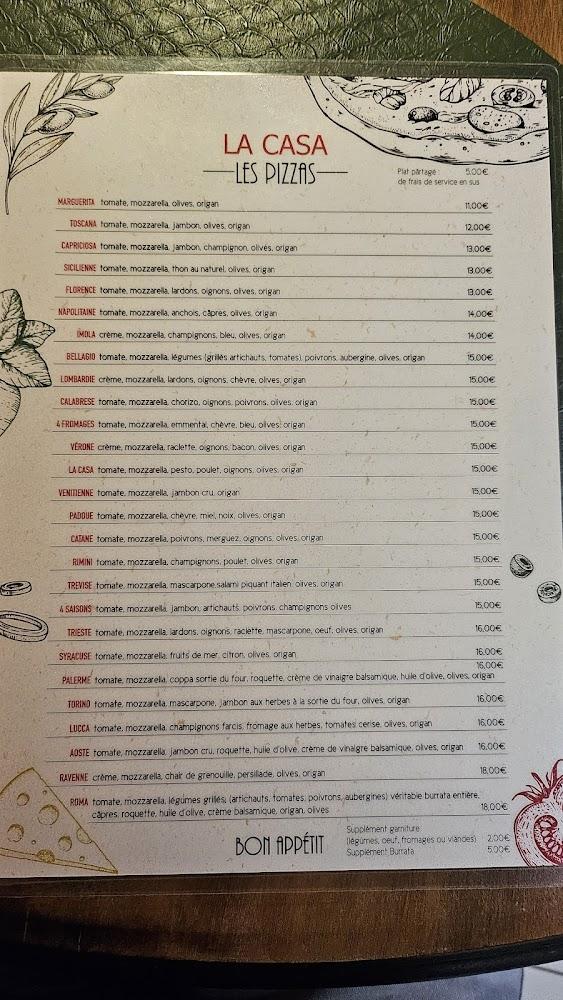 LA CASA
LES PIZZAS
Plat partagé : 5.00€
de frais de service en sus
MARGUERITA tomate, mozzarella, olives, origan 11,00€
TOSCANA tomate, mozzarella, jambon, olives, origan 12,00€
CAPRICIOSA tomate, mozzarella, jambon, champignon, olives, origan 13,00€
SICILIENNE tomate, mozzarella, thon au naturel, olives, origan 13,00€
FLORENCE tomate, mozzarella, lardons, oignons, olives, origan 13,00€
NAPOLITAINE tomate, mozzarella, anchois, câpres, olives, origan 14,00€
IMOLA crème, mozzarella, champignons, bleu, olives, origan 14,00€
BELLAGIO tomate, mozzarella, légumes (grillés artichauts, tomates), poivrons, aubergine, olives, origan 15,00€
LOMBARDIE crème, mozzarella, lardons, oignons, chèvre, olives, origan 15,00€
CALABRESE tomate, mozzarella, chorizo, oignons, poivrons, olives, origan 15,00€
4 FROMAGES tomate, mozzarella, emmental, chèvre, bleu, olives, origan 15,00€
VÉRONE crème, mozzarella, raclette, oignons, bacon, olives, origan 15,00€
LA CASA tomate, mozzarella, pesto, poulet, oignons, olives, origan 15,00€
VENITIENNE tomate, mozzarella, jambon cru, origan 15,00€
PADOUE tomate, mozzarella, chèvre, miel, noix, olives, origan 15,00€
CATANE tomate, mozzarella, poivrons, merguez, oignons, olives, origan 15,00€
RIMINI tomate, mozzarella, champignons, poulet, olives, origan 15,00€
TREVISE tomate, mozzarella, mascarpone,salami piquant italien, olives, origan 15,00€
4 SAISONS tomate, mozzarella, jambon, artichauts, poivrons, champignons olives 15,00€
TRIESTE tomate, mozzarella, lardons, oignons, raclette, mascarpone, oeuf, olives, origan 16,00€
SYRACUSE tomate, mozzarella, fruits de mer, citron, olives, origan 16,00€
16,00€
PALERME tomate, mozzarella, coppa sortie du four, roquette, crème de vinaigre balsamique, huile d'olive, olives, origan
TORINO tomate, mozzarella, mascarpone, jambon aux herbes à la sortie du four, olives, origan 16,00€
LUCCA tomate, mozzarella, champignons farcis, fromage aux herbes, tomates cerise, olives, origan 16,00€
AOSTE tomate, mozzarella, jambon cru, roquette, huile d'olive, crème de vinaigre balsamique, olives, origan 16,00€
RAVENNE crème, mozzarella, chair de grenouille, persillade, olives, origan 18,00€
ROMA tomate, mozzarella, légumes grillés, (artichauts, tomates, poivrons, aubergines) véritable burrata entière,
câpres, roquette, huile d'olive, crème balsamique, origan, olives 18,00€
BON APPÉTIT
Supplément garniture
(légumes, oeuf, fromages ou viandes) 2,00€
Supplément Burrata 5,00€